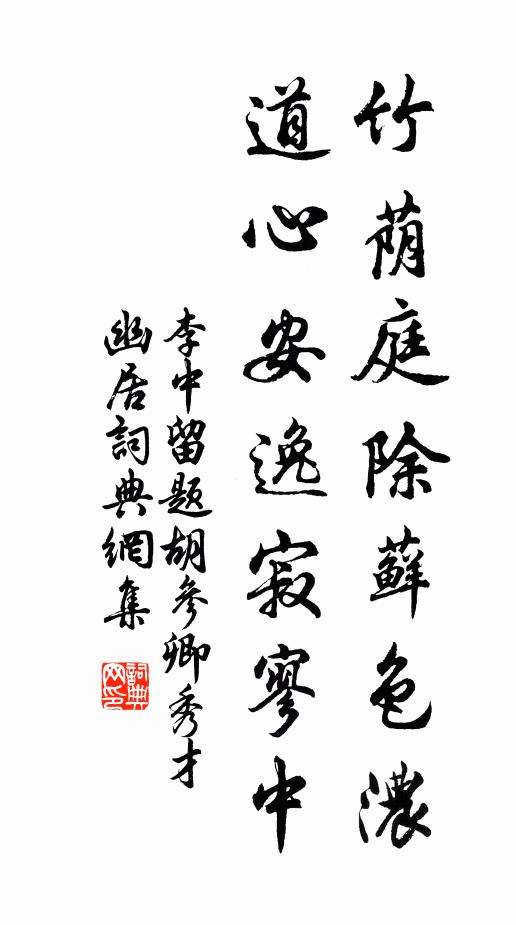 竹荫庭除蘚色濃
道心安逸寂寥中
李中留题胡參卿秀才
幽居詞典網集
詞典网印